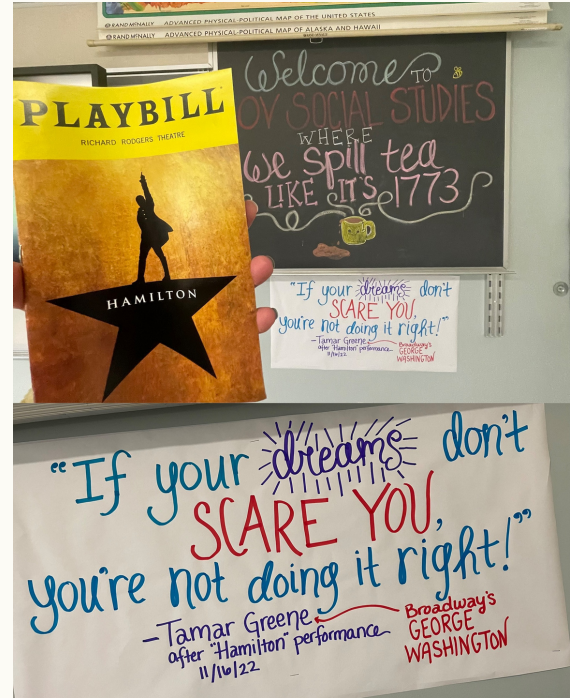 RAND MCNALLY ADVANCED PHYSICAL-POLITICAL MAP OF THE UNITED STATES
RAND MCNALLY ADVANCED PHYSICAL-POLITICAL MAP OF ALASKA AND HAWAII
PLAYBILL
RICHARD RODGERS THEATRE
HAMILTON
Welcome TO
OV SOCIAL STUDIES
WHERE
We spill tea
LIKE IT'S 1773
"If your dreams don't
SCARE YOU,
you're not doing it right!"
-Tamar Greene
after "Hamilton" performance
11/16/22
Broadway's
GEORGE
WASHINGTON
"If your dreams don't
SCARE YOU,
you're not doing it right!"
-Tamar Greene
after "Hamilton" performance
11/16/22
Broadway's
GEORGE
WASHINGTON